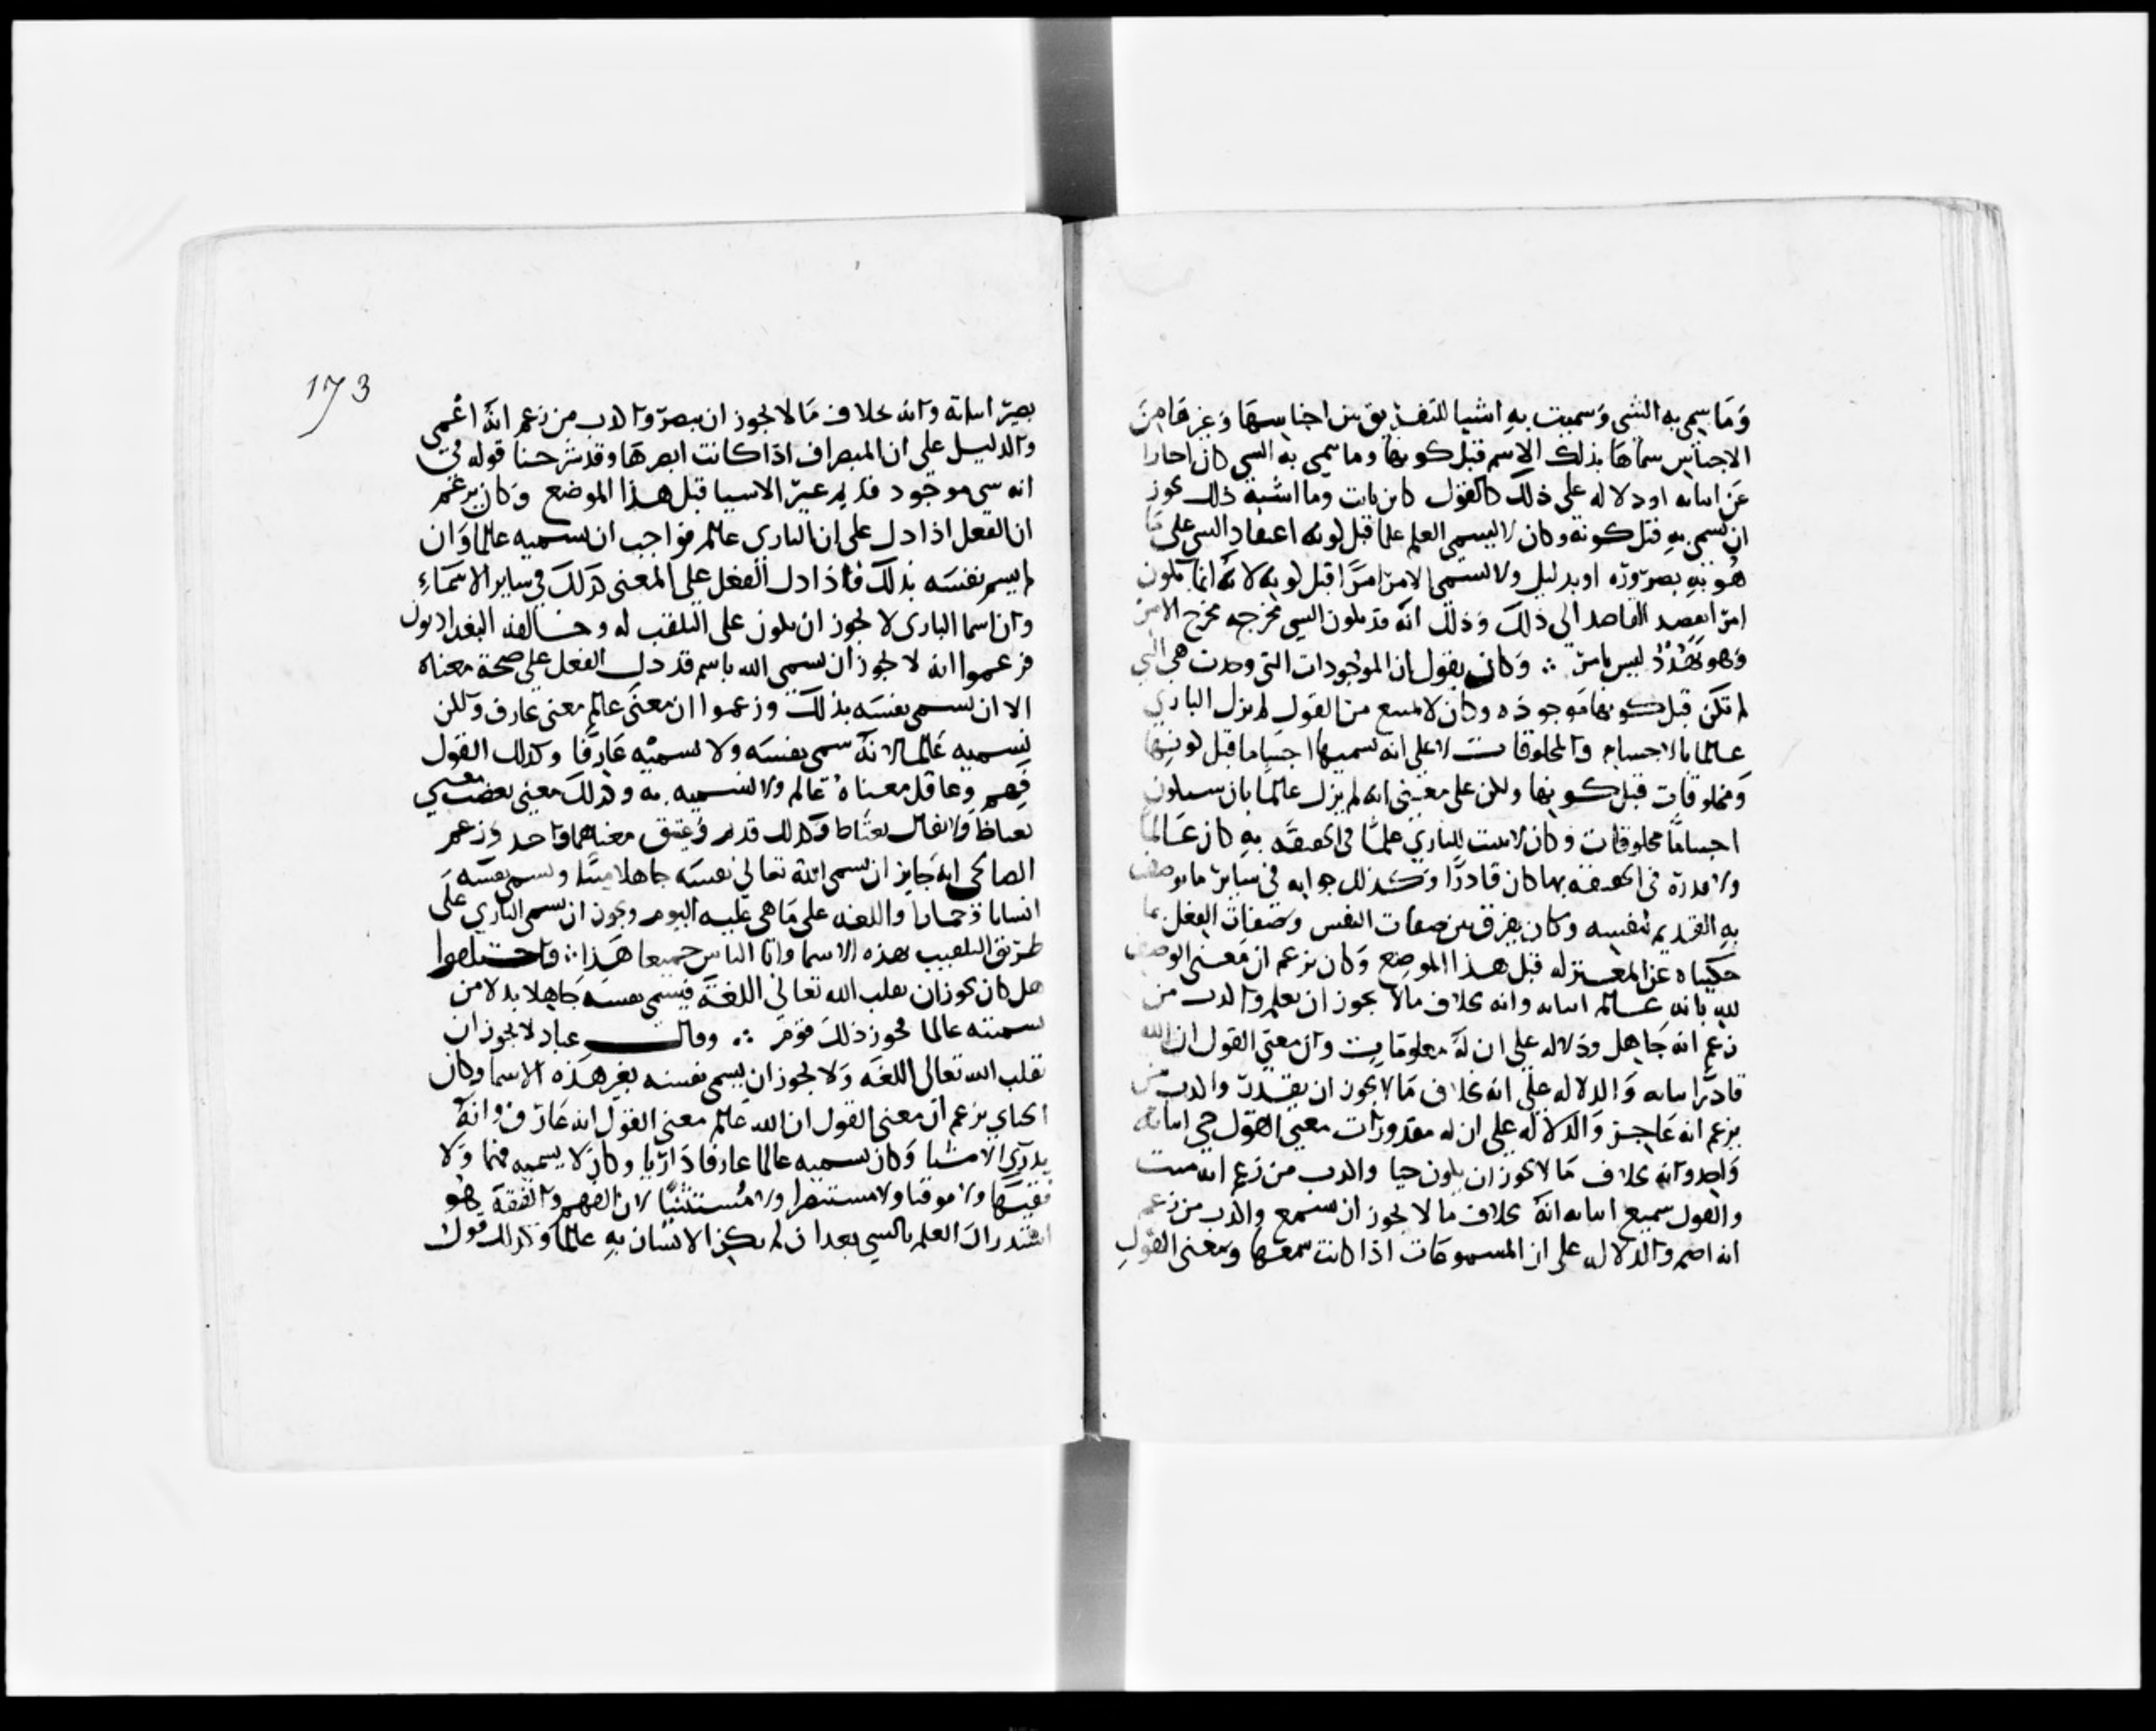 وما سمي به الشي وسميت به اشيا للتفريق بين اجناسها وغيرها من
الاجناس سماها بذلك الاسم قبل كونها وما سمي به الشي كان اخبارا
عن اثباته او دلالة على ذلك كالقول كاين ثابت وما اشبه ذلك يجوز
ان يسمى به قبل كونه وكان لا يسمي العلم علما قبل كونه اعتقاد الشي على ما
هو به بضرورة او بدليل ولا يسمي الامر امرا قبل كونه لانه انما يكون
امرا بقصد القاصد الى ذلك وذلك انه قد يكون الشي مخرجه مخرج الامر
وهو تهدد ليس بامر ∴ وكان يقول ان الموجودات التي وجدت هي التي
لم تكن قبل كونها موجودة وكان لا يمتنع من القول لم يزل الباري
عالما بالاجسام والمخلوقات لا على انه يسميها اجساما قبل كونها
ومخلوقات قبل كونها ولكن على معنى انه لم يزل عالما بان ستكون
اجساما مخلوقات وكان لا يثبت للباري علما في الحقيقة به كان عالما
ولا قدرة في الحقيقة بها كان قادرا وكذلك جوابه في سائر ما يوصف
به القديم لنفسه وكان يفرق بين صفات النفس وصفات الفعل بما
حكيناه عن المعتزلة قبل هذا الموضع وكان يزعم ان معنى الوصف
لله بانه عالم اثباته وانه بخلاف ما لا يجوز ان يعلم واكذاب من
زعم انه جاهل ودلالة على ان له معلومات وان معنى القول ان الله
قادر اثباته والدلالة على انه بخلاف ما لا يجوز ان يقدر واكذاب من
يزعم انه عاجز والدلالة على ان له مقدورات معنى القول حي اثباته
واحدا وانه بخلاف ما لا يجوز ان يكون حيا واكذاب من زعم انه ميت
والقول سميع اثباته انه بخلاف ما لا يجوز ان يسمع واكذاب من زعم
انه اصم والدلالة على ان المسموعات اذا كانت سمعها ومعنى القول
173
بصير اثباته وانه بخلاف ما لا يجوز ان يبصر واكذاب من زعم انه اعمى
والدليل على ان المبصرات اذا كانت ابصرها وقد شرحنا قوله في
انه شي موجود قديم غير الاشيا قبل هذا الموضع وكان يزعم
ان الفعل اذا دل على ان الباري عالم فواجب ان نسميه عالما وان
لم يسم نفسه بذلك فاذا دل الفعل على المعنى كذلك في ساير الاسماء
وان اسما الباري لا يجوز ان يكون على التلقيب له وخالفه البغداديون
فزعموا انه لا يجوز ان نسمي الله باسم قد دل الفعل على صحة معناه
الا ان يسمي نفسه بذلك وزعموا ان معنى عالم معنى عارف ولكن
نسميه عالما لانه سمى نفسه ولا نسميه عارفا وكذلك القول
فهم وعاقل معناه عالم ولا نسميه به وكذلك معنى يغضب معنى
يغتاظ ولا يقال يغتاظ وكذلك قديم وعتيق معناهما واحد وزعم
الصالحي انه جايز ان يسمي الله تعالى نفسه جاهلا ميتا ويسمي نفسه
انسانا وحمارا واللغة على ما هي عليه اليوم ويجوز ان يسمى الباري على
طريق التلقيب بهذه الاسما وابا الناس جميعا هذا ∴ واختلفوا
هل كان يجوز ان يقلب الله تعالى اللغة فيسمي نفسه جاهلا بدلا من
تسميته عالما فجوز ذلك قوم ∴ وقال عباد لا يجوز ان
يقلب الله تعالى اللغة ولا يجوز ان يسمي نفسه بغير هذه الاسما وكان
الجباي يزعم ان معنى القول ان الله عالم معنى القول انه عارف وانه
يدري الاشيا وكان يسميه عالما عارفا داريا وكان لا يسميه فهما ولا
فقيها ولا موقنا ولا مستبصرا ولا مستثبتا لان الفهم والفقه هو
استدراك العلم بالشي بعد ان لم يكن الانسان به عالما وكذلك قول